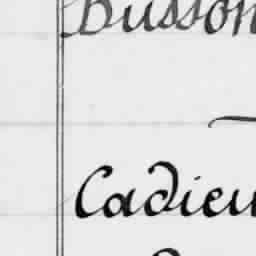 Busson
Cadieu